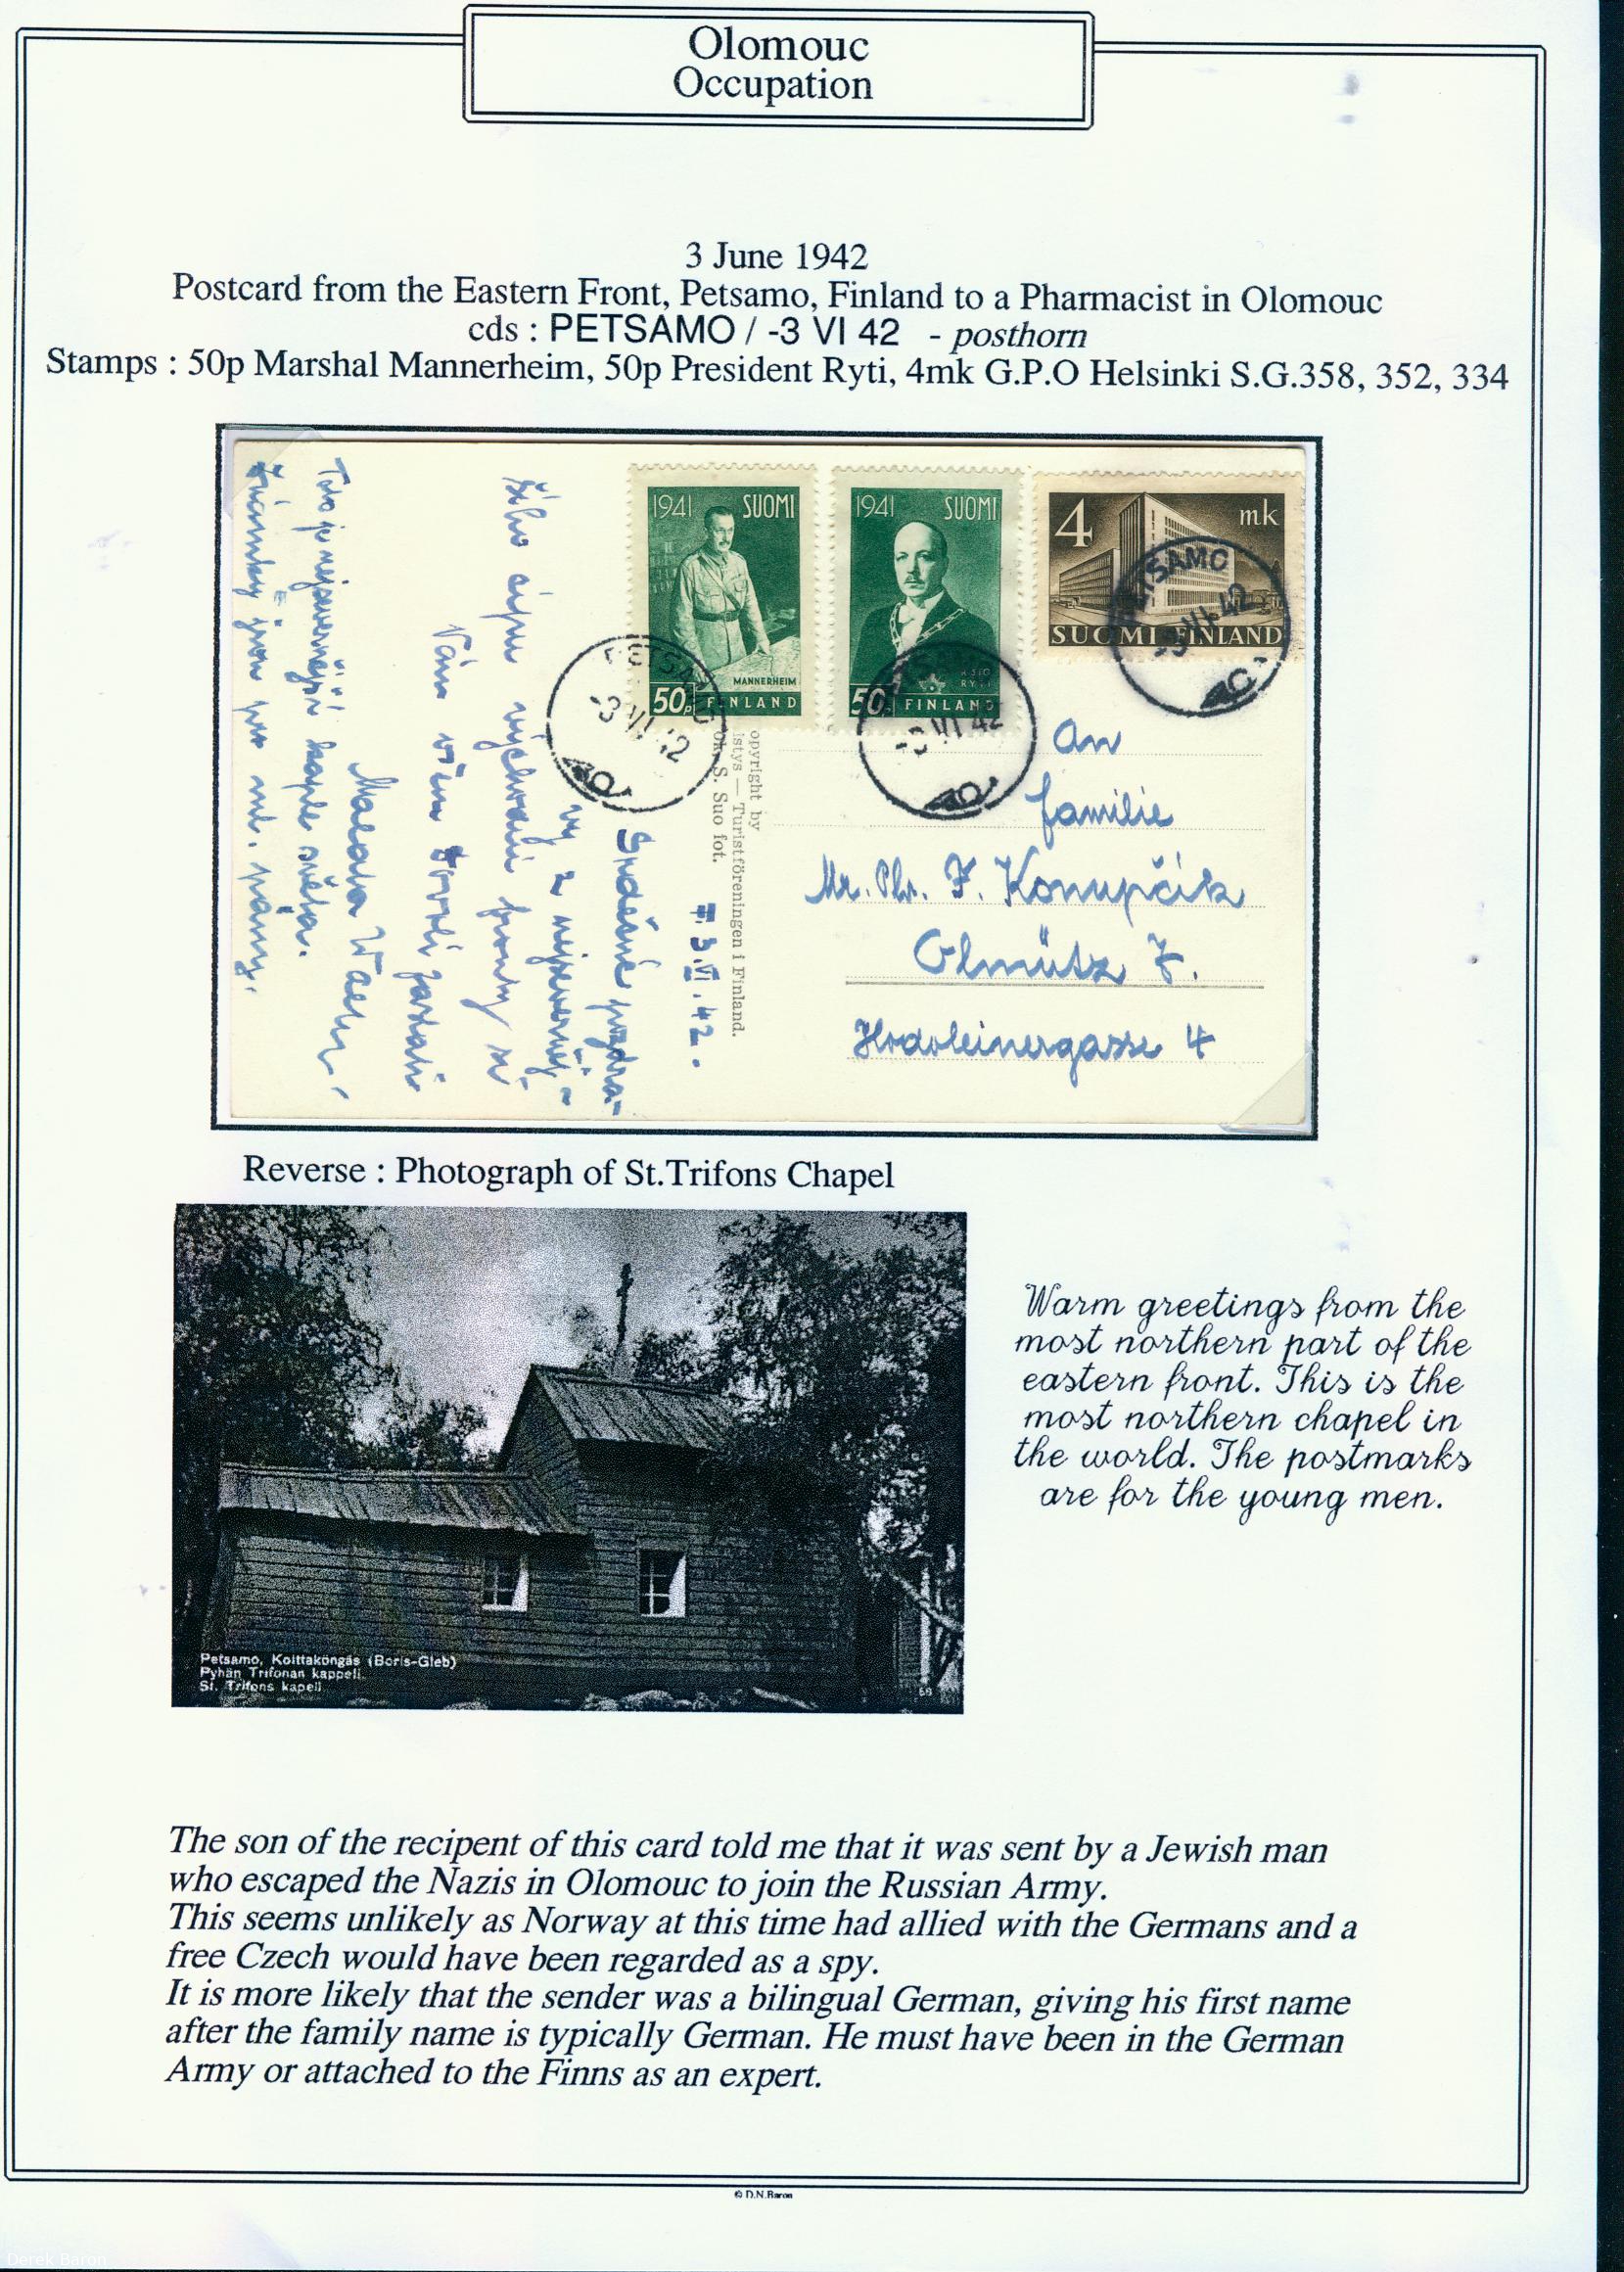 Olomouc
Occupation
3 June 1942
Postcard from the Eastern Front, Petsamo, Finland to a Pharmacist in Olomouc
cds : PETSAMO / -3 VI 42 - posthorn
Stamps : 50p Marshal Mannerheim, 50p President Ryti, 4mk G.P.O Helsinki S.G.358, 352, 334
1941 SUOMI
MANNERHEIM
50p FINLAND
1941 SUOMI
RISTO
RYTI
50 FINLAND
4 mk
SUOMI FINLAND
PETSAMO
-3 VI 42
PETSAMO
-3 VI 42
PETSAMO
-3 VI 42
opyright by
istys — Turistföreningen i Finland.
Ok. S. Suo fot.
T. 3.VI.42.
Srdečné pozdra-
vy z nejseverněj-
šího cípu východní fronty si
Vám všem dovolí zaslati
Toto je nejsevernější kaple světa.
Známky jsou pro ml. pány.
An
familie
Mr. Phr. F. Konupčik
Olmütz 7.
Hodoleinergasse 4
Reverse : Photograph of St.Trifons Chapel
Petsamo, Kolttaköngäs (Boris-Gleb)
Pyhän Trifonan kappeli
St. Trifons kapell
Warm greetings from the
most northern part of the
eastern front. This is the
most northern chapel in
the world. The postmarks
are for the young men.
The son of the recipent of this card told me that it was sent by a Jewish man
who escaped the Nazis in Olomouc to join the Russian Army.
This seems unlikely as Norway at this time had allied with the Germans and a
free Czech would have been regarded as a spy.
It is more likely that the sender was a bilingual German, giving his first name
after the family name is typically German. He must have been in the German
Army or attached to the Finns as an expert.
© D.N.Baron
Derek Baron